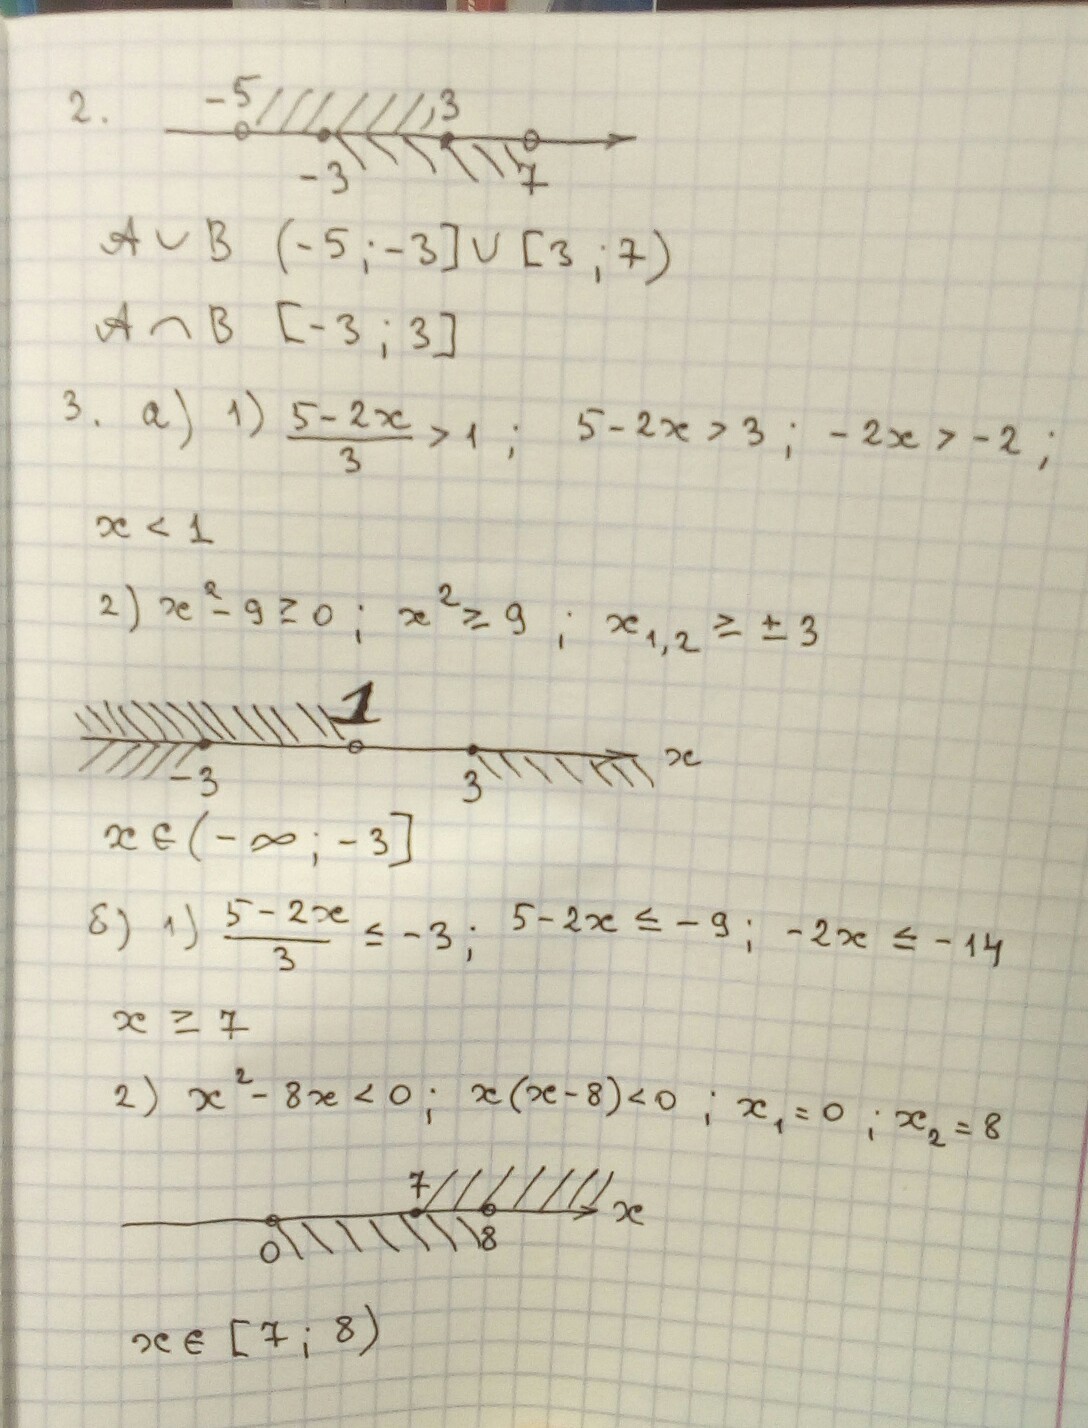 2. -5 3
-3 7
A ∪ B (-5 ; -3] ∪ [3 ; 7)
A ∩ B [-3 ; 3]
3. а) 1) (5-2x)/3 > 1 ; 5-2x > 3 ; -2x > -2 ;
x < 1
2) x² - 9 ≥ 0 ; x² ≥ 9 ; x₁,₂ ≥ ± 3
1
-3 3 x
x ∈ (-∞ ; -3]
б) 1) (5-2x)/3 ≤ -3 ; 5-2x ≤ -9 ; -2x ≤ -14
x ≥ 7
2) x² - 8x < 0 ; x(x-8) < 0 ; x₁ = 0 ; x₂ = 8
7 x
0 8
x ∈ [7 ; 8)